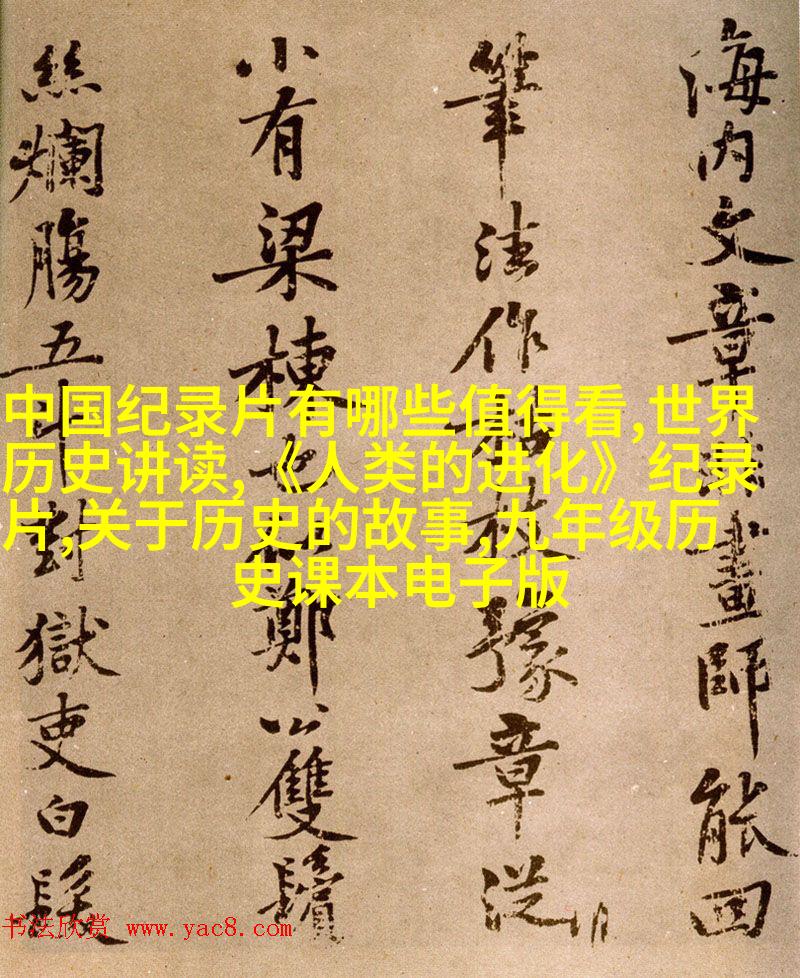 海内文章非畫師能回
筆法作松枝豫章從
小有梁棟也似鄭公雙鬢
絲爛腸五斗對獄吏白髮
中国纪录片有哪些值得看,世界
历史讲读,《人类的进化》纪录
片,关于历史的故事,九年级历
史课本电子版
书法欣赏 www.yac8.com